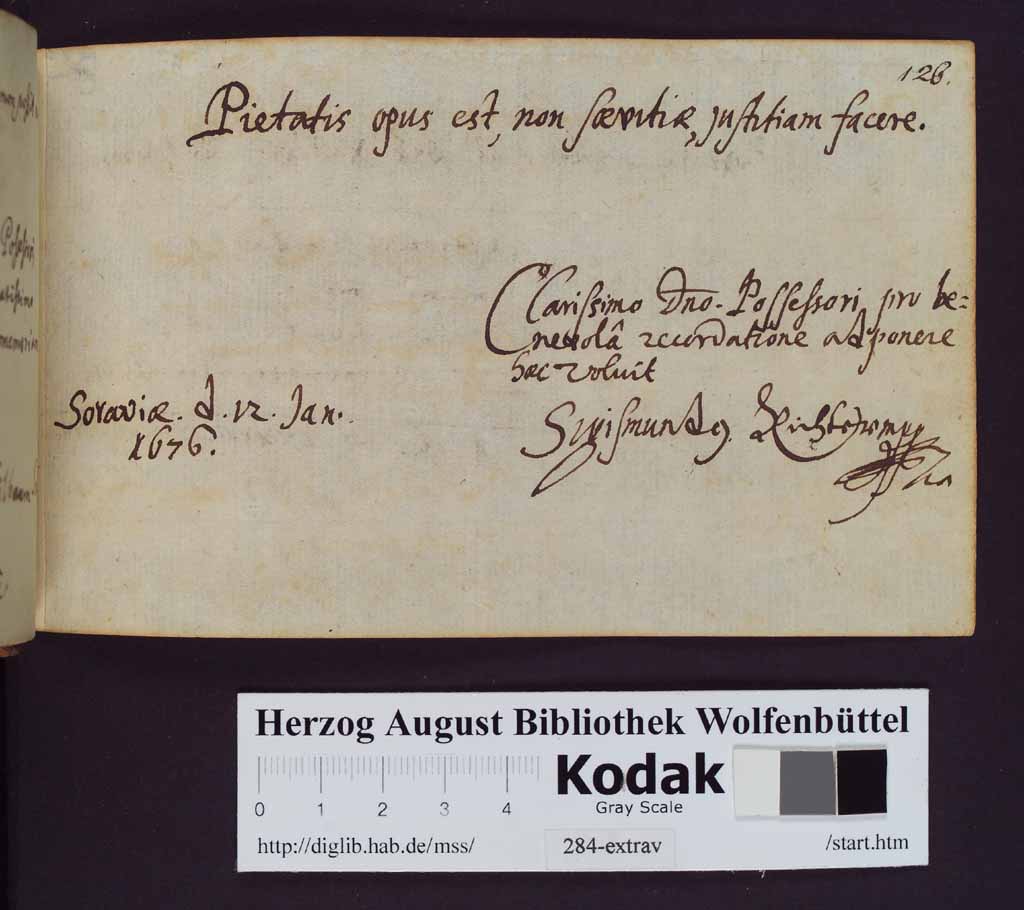 126.
Pietatis opus est, non sævitiæ, justitiam facere.
Clarissimo Dno. Possessori pro be-
nevolâ recordatione adponere
hæc voluit
Soraviæ. d. 12. Jan.
1676.
Sigismundꝰ
Herzog August Bibliothek Wolfenbüttel
0 1 2 3 4
Kodak
Gray Scale
http://diglib.hab.de/mss/ 284-extrav /start.htm